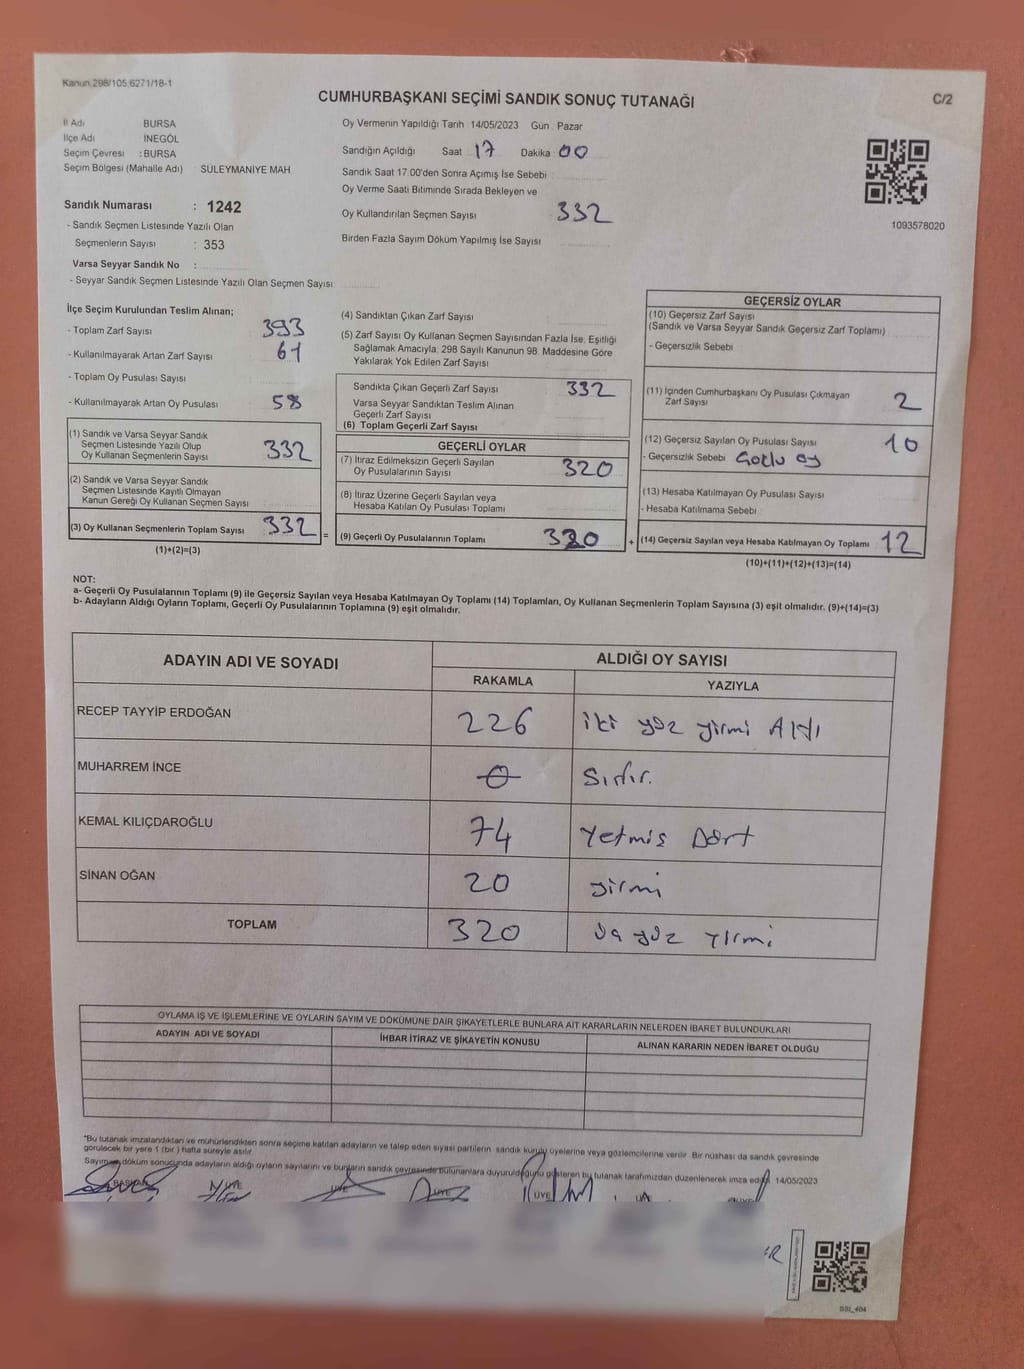 Kanun 298/105,6271/18-1
CUMHURBAŞKANI SEÇİMİ SANDIK SONUÇ TUTANAĞI
C/2
İl Adı BURSA
İlçe Adı İNEGÖL
Seçim Çevresi : BURSA
Seçim Bölgesi (Mahalle Adı) SÜLEYMANİYE MAH
Sandık Numarası : 1242
- Sandık Seçmen Listesinde Yazılı Olan
Seçmenlerin Sayısı : 353
Varsa Seyyar Sandık No :
- Seyyar Sandık Seçmen Listesinde Yazılı Olan Seçmen Sayısı
Oy Vermenin Yapıldığı Tarih 14/05/2023 Gün Pazar
Sandığın Açıldığı Saat 17 Dakika 00
Sandık Saat 17.00'den Sonra Açımış İse Sebebi
Oy Verme Saati Bitiminde Sırada Bekleyen ve
Oy Kullandırılan Seçmen Sayısı 332
Birden Fazla Sayım Döküm Yapılmış İse Sayısı
1093578020
İlçe Seçim Kurulundan Teslim Alınan;
- Toplam Zarf Sayısı 393
- Kullanılmayarak Artan Zarf Sayısı 61
- Toplam Oy Pusulası Sayısı
- Kullanılmayarak Artan Oy Pusulası 58
(1) Sandık ve Varsa Seyyar Sandık
Seçmen Listesinde Yazılı Olup
Oy Kullanan Seçmenlerin Sayısı 332
(2) Sandık ve Varsa Seyyar Sandık
Seçmen Listesinde Kayıtlı Olmayan
Kanun Gereği Oy Kullanan Seçmen Sayısı
(3) Oy Kullanan Seçmenlerin Toplam Sayısı 332 =
(1)+(2)=(3)
(4) Sandıktan Çıkan Zarf Sayısı
(5) Zarf Sayısı Oy Kullanan Seçmen Sayısından Fazla İse, Eşitliği
Sağlamak Amacıyla, 298 Sayılı Kanunun 98. Maddesine Göre
Yakılarak Yok Edilen Zarf Sayısı
Sandıkta Çıkan Geçerli Zarf Sayısı 332
Varsa Seyyar Sandıktan Teslim Alınan
Geçerli Zarf Sayısı
(6) Toplam Geçerli Zarf Sayısı
GEÇERLİ OYLAR
(7) İtiraz Edilmeksizin Geçerli Sayılan
Oy Pusulalarının Sayısı 320
(8) İtiraz Üzerine Geçerli Sayılan veya
Hesaba Katılan Oy Pusulası Toplamı
(9) Geçerli Oy Pusulalarının Toplamı 320 +
GEÇERSİZ OYLAR
(10) Geçersiz Zarf Sayısı
(Sandık ve Varsa Seyyar Sandık Geçersiz Zarf Toplamı)
- Geçersizlik Sebebi
(11) İçinden Cumhurbaşkanı Oy Pusulası Çıkmayan
Zarf Sayısı 2
(12) Geçersiz Sayılan Oy Pusulası Sayısı 10
- Geçersizlik Sebebi oy
(13) Hesaba Katılmayan Oy Pusulası Sayısı
- Hesaba Katılmama Sebebi
(14) Geçersiz Sayılan veya Hesaba Katılmayan Oy Toplamı 12
(10)+(11)+(12)+(13)=(14)
NOT:
a- Geçerli Oy Pusulalarının Toplamı (9) ile Geçersiz Sayılan veya Hesaba Katılmayan Oy Toplamı (14) Toplamları, Oy Kullanan Seçmenlerin Toplam Sayısına (3) eşit olmalıdır. (9)+(14)=(3)
b- Adayların Aldığı Oyların Toplamı, Geçerli Oy Pusulalarının Toplamına (9) eşit olmalıdır.
ADAYIN ADI VE SOYADI
ALDIĞI OY SAYISI
RAKAMLA YAZIYLA
RECEP TAYYİP ERDOĞAN 226 iki yüz yirmi Altı
MUHARREM İNCE 0 Sıfır.
KEMAL KILIÇDAROĞLU 74 Yetmiş Dört
SİNAN OĞAN 20 yirmi
TOPLAM 320 Üç yüz yirmi
OYLAMA İŞ VE İŞLEMLERİNE VE OYLARIN SAYIM VE DÖKÜMÜNE DAİR ŞİKAYETLERLE BUNLARA AİT KARARLARIN NELERDEN İBARET BULUNDUKLARI
ADAYIN ADI VE SOYADI İHBAR İTİRAZ VE ŞİKAYETİN KONUSU ALINAN KARARIN NEDEN İBARET OLDUĞU
*Bu tutanak imzalandıktan ve mühürlendikten sonra seçime katılan adayların ve talep eden siyasi partilerin sandık kurulu üyelerine veya gözlemcilerine verilir. Bir nüshası da sandık çevresinde
görülecek bir yere 1 (bir ) hafta süreyle asılır.
Sayım ve döküm sonucunda adayların aldığı oyların sayılarını ve bunların sandık çevresinde bulunanlara duyurulduğunu gösteren bu tutanak tarafımızdan düzenlenerek imza edildi. 14/05/2023
BAŞKAN ÜYE ÜYE ÜYE ÜYE
SSI_404